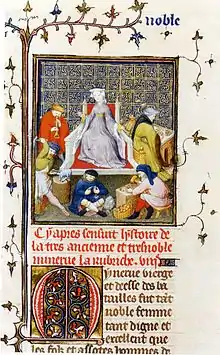 noble
Cy apres sensuit listoire de
la tres ancienne et tresnoble
minerue la
Mynerue vierge
et deesse des ba
tailles fut tāt
noble femme
tant digne et
excellent que
les folz et assotes hommes de